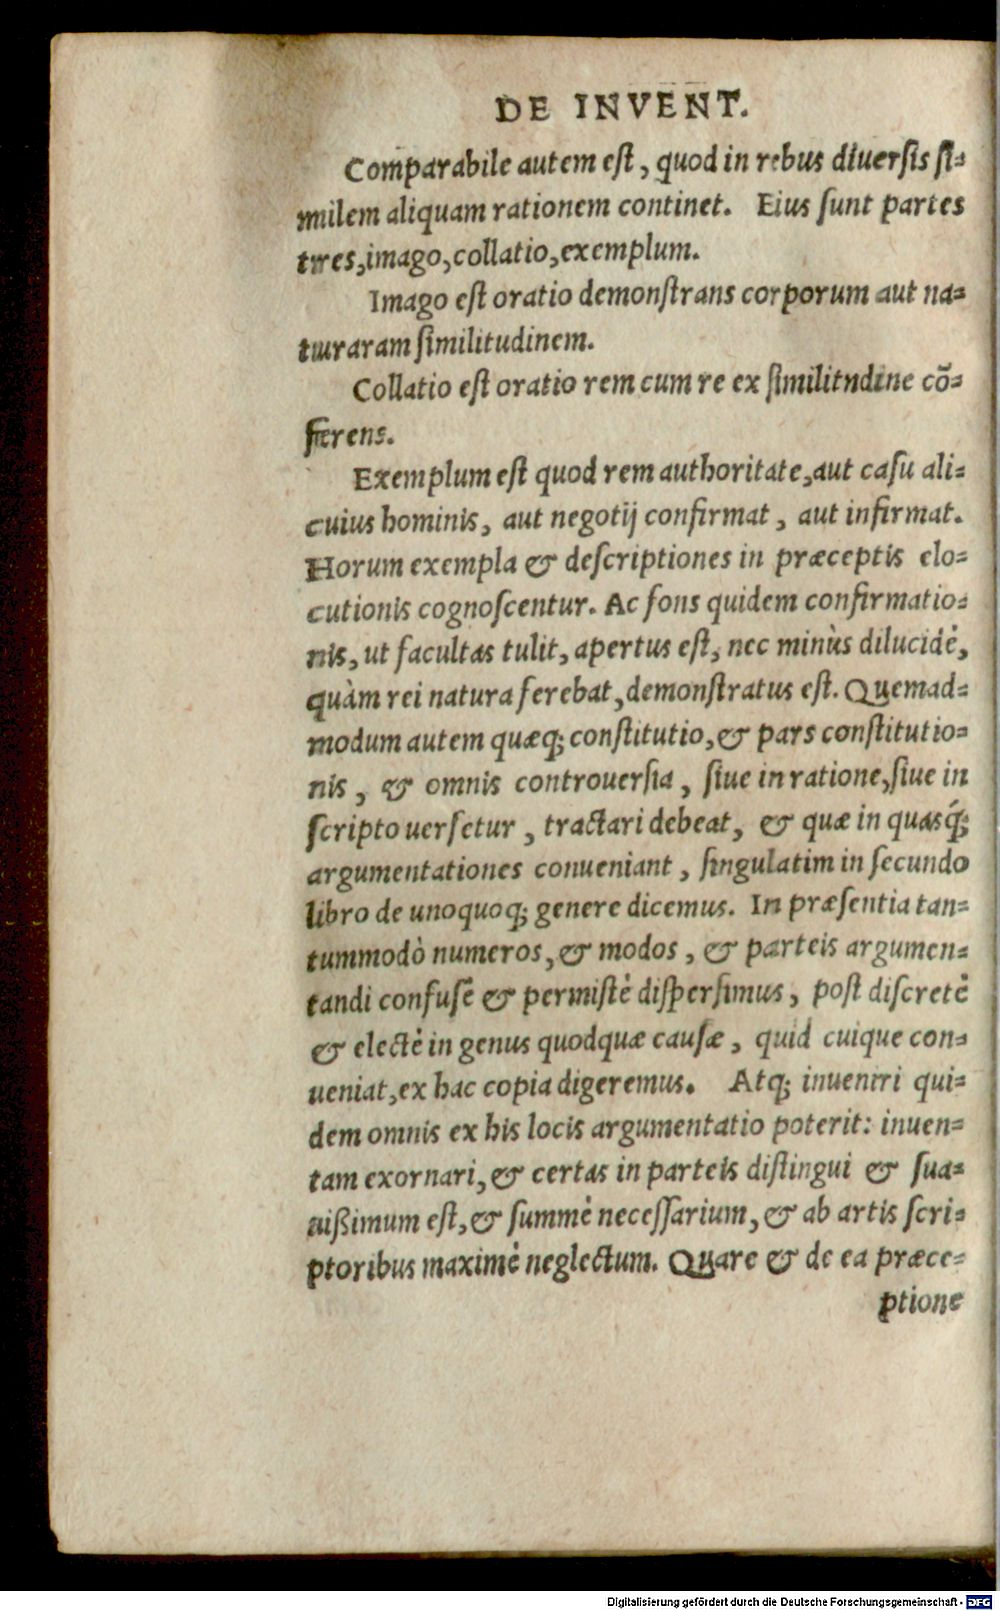 DE INVENT.
Comparabile autem est, quod in rebus diuersis si-
milem aliquam rationem continet. Eius sunt partes
tres, imago, collatio, exemplum.
Imago est oratio demonstrans corporum aut na-
turaram similitudinem.
Collatio est oratio rem cum re ex similitndine cō-
ferens.
Exemplum est quod rem authoritate, aut casu ali-
cuius hominis, aut negotij confirmat, aut infirmat.
Horum exempla & descriptiones in præceptis elo-
cutionis cognoscentur. Ac fons quidem confirmatio-
nis, ut facultas tulit, apertus est, nec minùs dilucidè,
quàm rei natura ferebat, demonstratus est. Quemad-
modum autem quæq; constitutio, & pars constitutio-
nis, & omnis controuersia, siue in ratione, siue in
scripto uersetur, tractari debeat, & quæ in quasq́;
argumentationes conueniant, singulatim in secundo
libro de unoquoq; genere dicemus. In præsentia tan-
tummodò numeros, & modos, & parteis argumen-
tandi confusè & permistè dispersimus, post discretè
& electè in genus quodquæ causæ, quid cuique con-
ueniat, ex hac copia digeremus. Atq; inueniri qui-
dem omnis ex his locis argumentatio poterit: inuen-
tam exornari, & certas in parteis distingui & sua-
uißimum est, & summè necessarium, & ab artis scri-
ptoribus maximè neglectum. Quare & de ea præce-
ptione
Digitalisierung gefördert durch die Deutsche Forschungsgemeinschaft - DFG